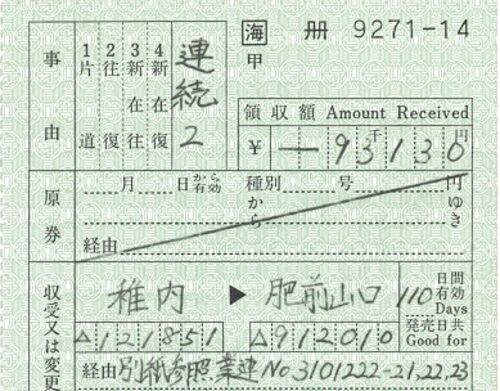 海 冊 9271-14
甲
事由
1片道
2往復
3新在往
4新在復
連続2
領収額 Amount Received
¥ 千 円
一93130
原券
月 日から有効 種別 号 円
から ゆき
経由
収受又は変更
稚内 ▶ 肥前山口 110 日間有効 Days
△121851 △912010 発売日共 Good for
経由 別紙参照業連 No 3101222-21,22,23